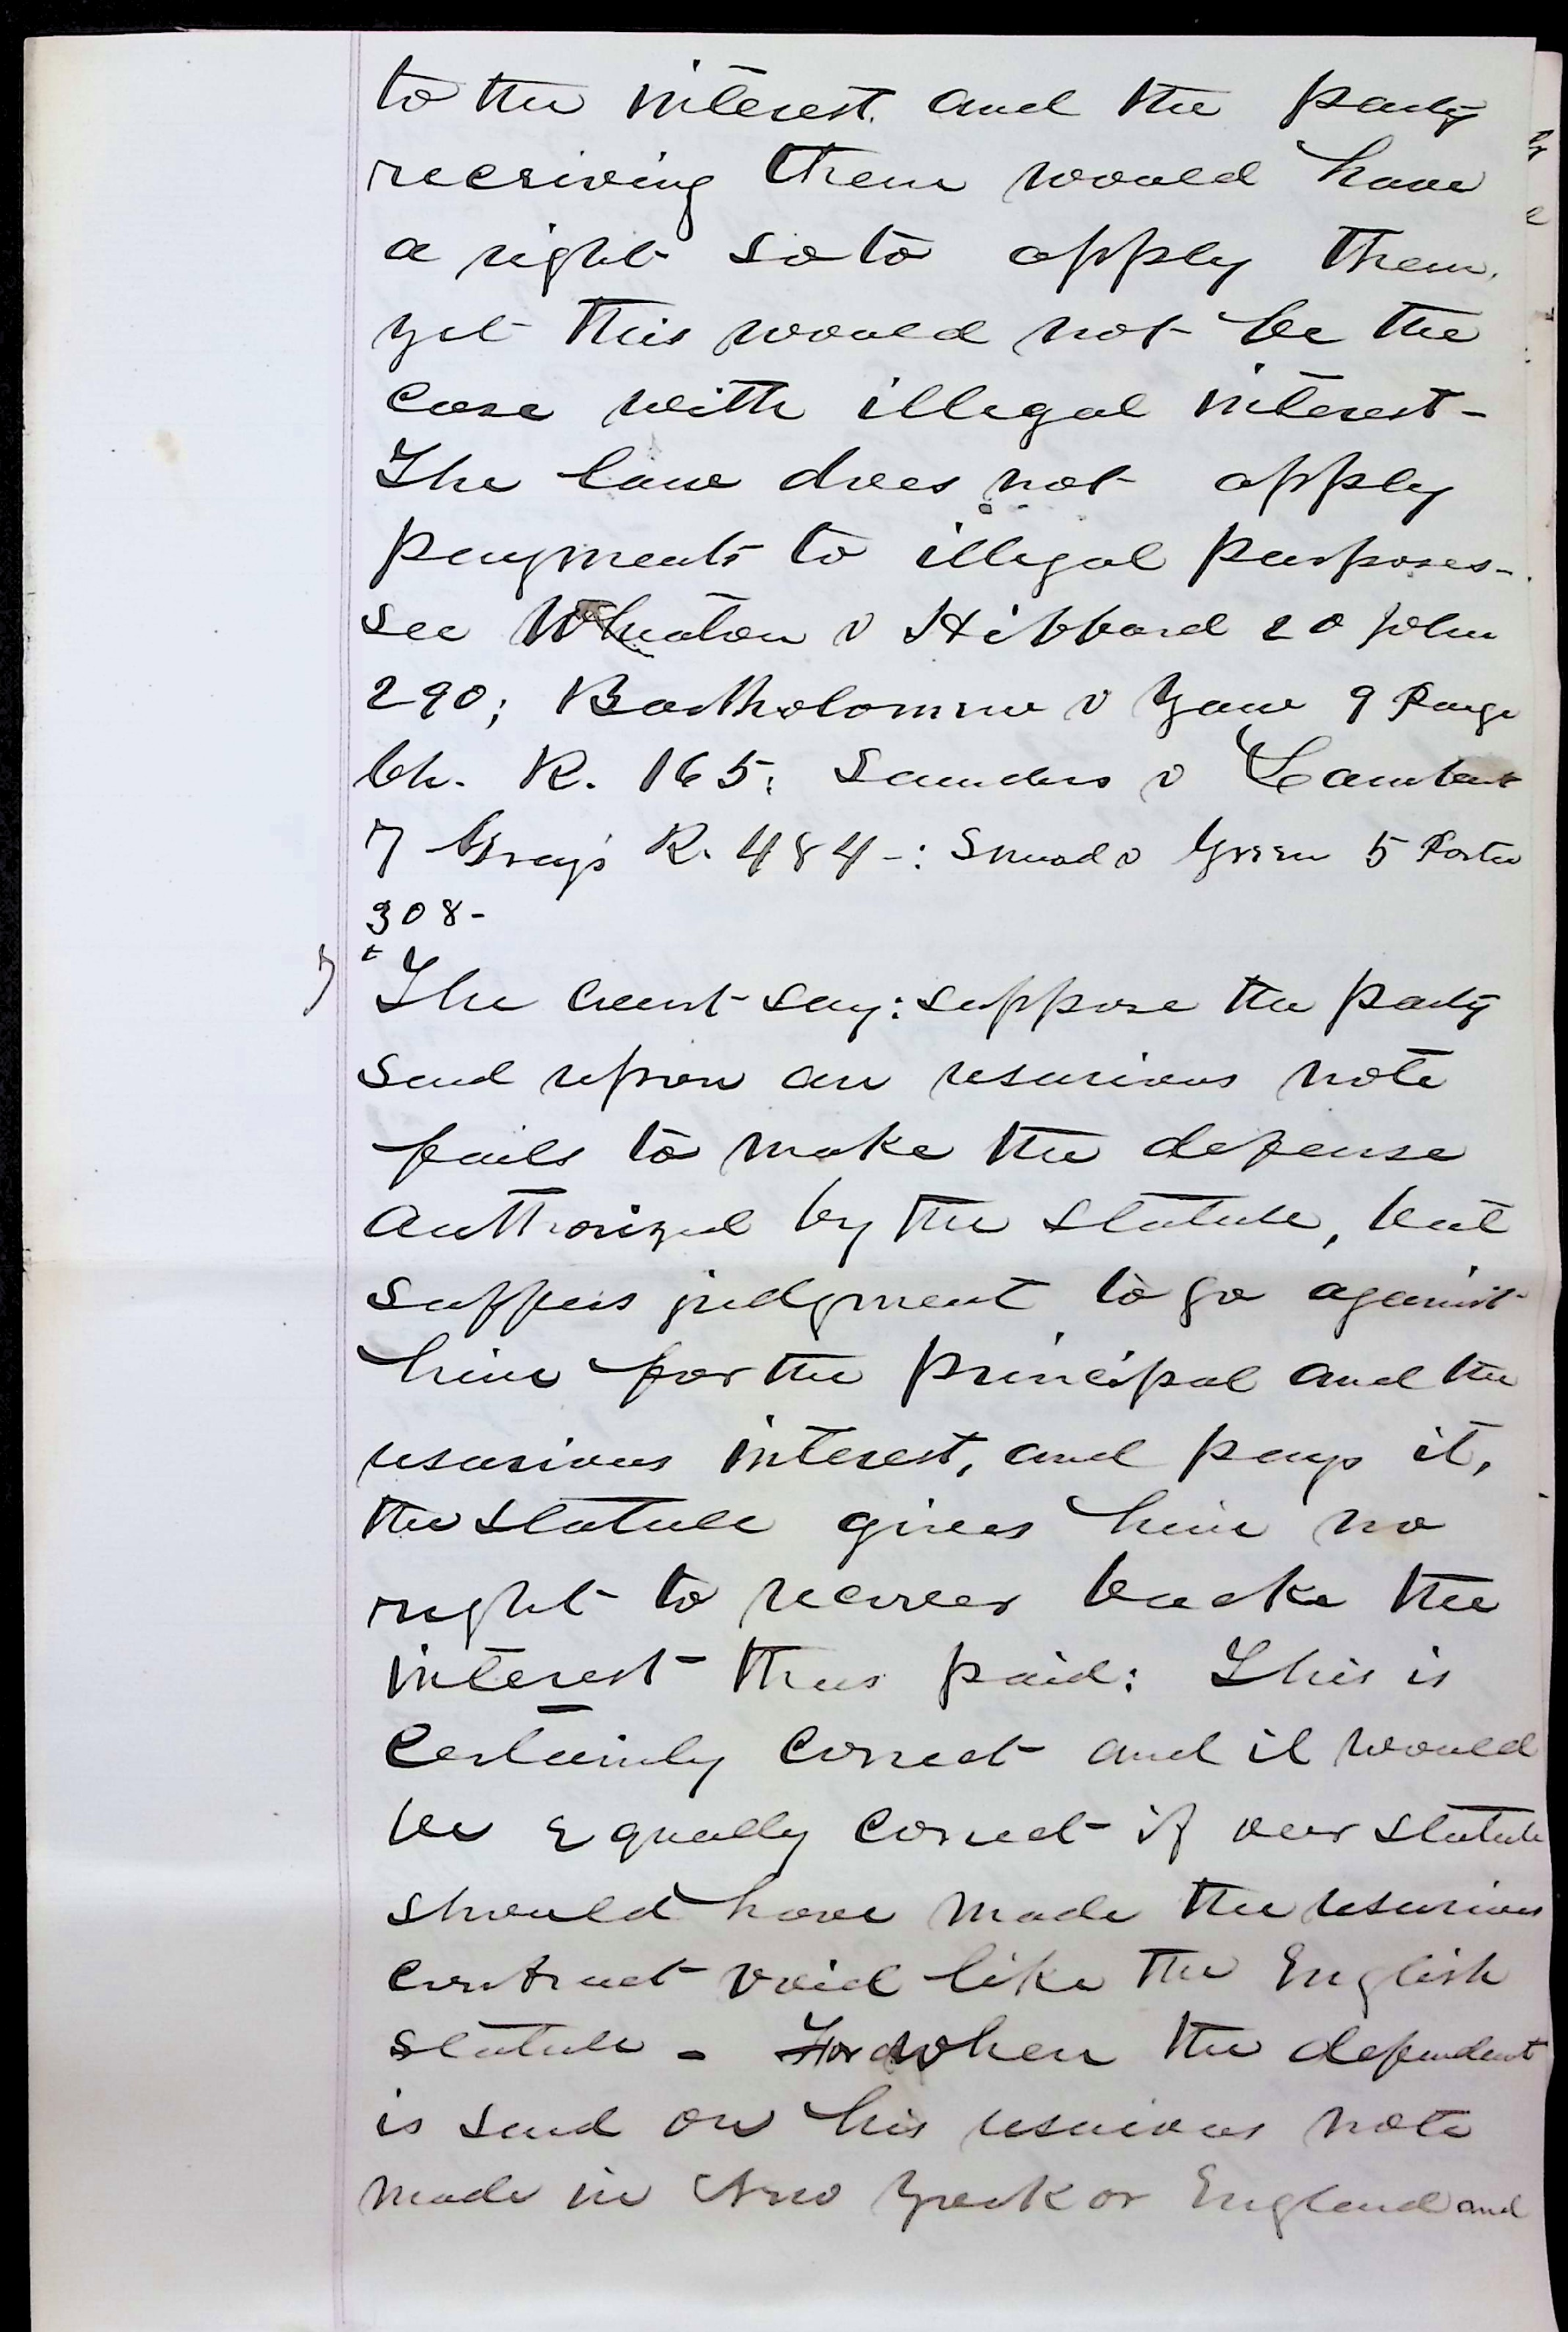 to the interest. and the party
receiving them would have
a right so to apply them.
yet this would not be the
case with illegal interest-
The law does not apply
payments to illegal purposes-.
see Wheaton v Hibbard 20 John
290; Bartholomew v Yaw 9 Paige
Ch. R. 165; Saunders v Lambert
7 Gray's R. 484-: Snead v Green 5 Porter
308-
"The court say: suppose the party
sued upon an usurious note
fails to make the defense
authorized by the statute, but
suffers judgment to go against
him for the principal and the
usurious interest, and pays it,
the statute gives him no
right to recover back the
interest thus paid: This is
certainly correct and it would
be equally correct if our statute
should have made the usurious
contract void like the English
statute - For when the defendant
is sued on his usurious note
made in New York or England and